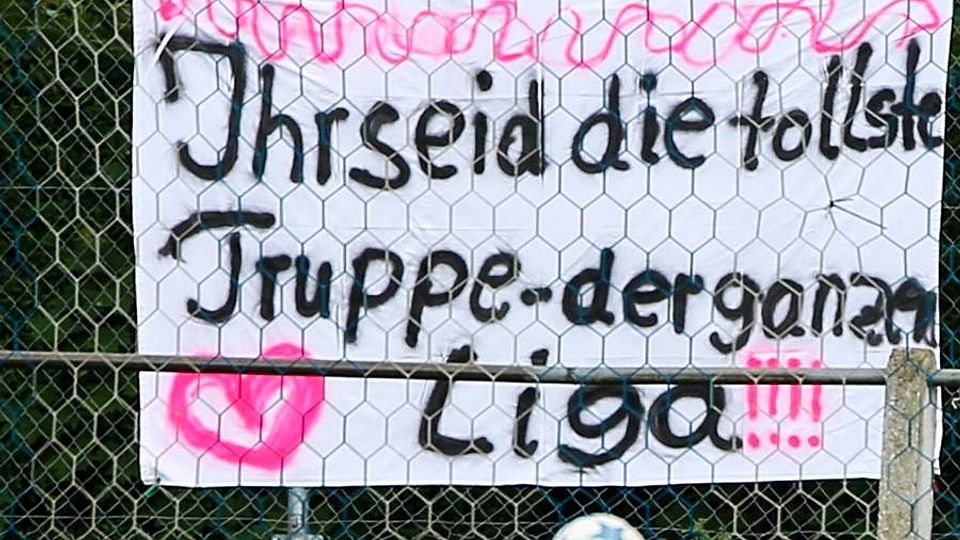 Ihr seid die tollste
Truppe - der ganzen
Liga!!!!